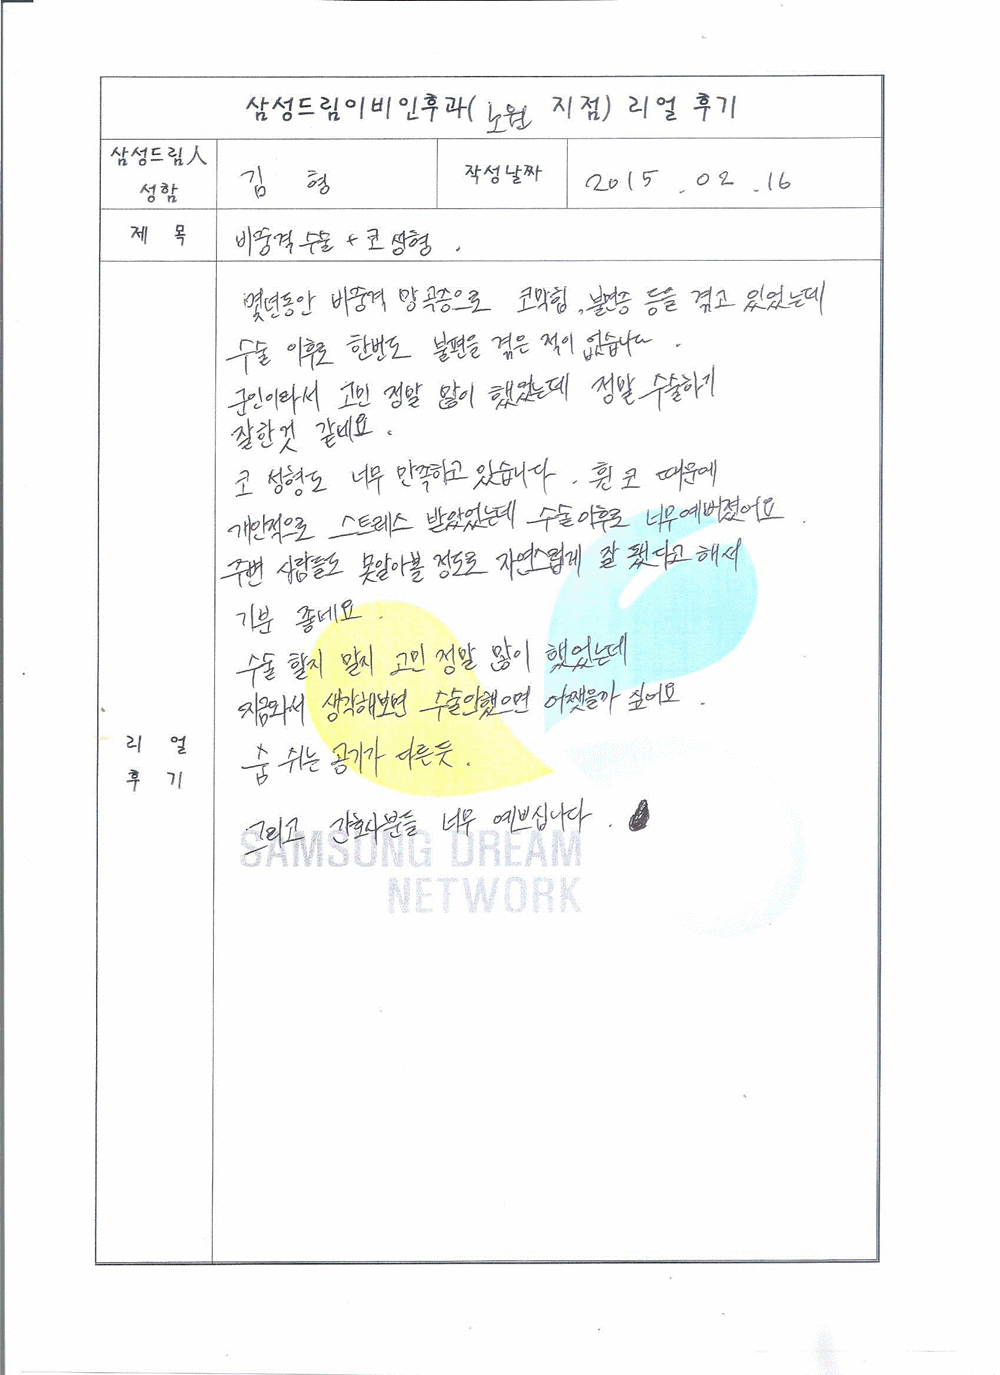 삼성드림이비인후과(노원 지점) 리얼 후기
삼성드림人 성함
김 형
작성날짜
2015 . 02 . 16
제 목
비중격 수술 + 코 성형 .
리 얼
후 기
몇년동안 비중격 망곡증으로 코막힘, 불편증 등을 겪고 있었는데
수술 이후로 한번도 불편을 겪은 적이 없습니다 .
군인이라서 고민 정말 많이 했었는데 정말 수술하기
잘한것 같네요 .
코 성형도 너무 만족하고 있습니다 . 휜 코 때문에
개인적으로 스트레스 받았었는데 수술이후로 너무예뻐졌어요 .
주변 사람들도 못알아볼 정도로 자연스럽게 잘 됐다고 해서
기분 좋네요 .
수술 할지 말지 고민 정말 많이 했었는데
지금와서 생각해보면 수술안했으면 어쨋을까 싶어요 .
숨 쉬는 공기가 다른듯 .
그리고 간호사분들 너무 예쁘십니다 .
SAMSUNG DREAM
NETWORK